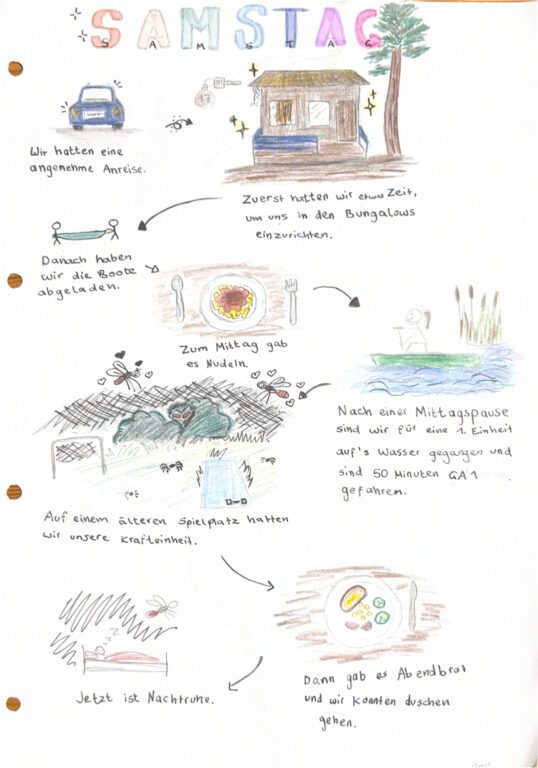 SAMSTAG
SAMSTAG
17
Wir hatten eine
angenehme Anreise.
Zuerst hatten wir etwas Zeit,
um uns in den Bungalows
einzurichten.
Danach haben
wir die Boote
abgeladen.
Zum Mittag gab
es Nudeln.
Nach einer Mittagspause
sind wir für eine 1. Einheit
auf's Wasser gegangen und
sind 50 Minuten GA1
gefahren.
Auf einem älteren Spielplatz hatten
wir unsere Krafteinheit.
Dann gab es Abendbrot
und wir konnten duschen
gehen.
zzz
Jetzt ist Nachtruhe.